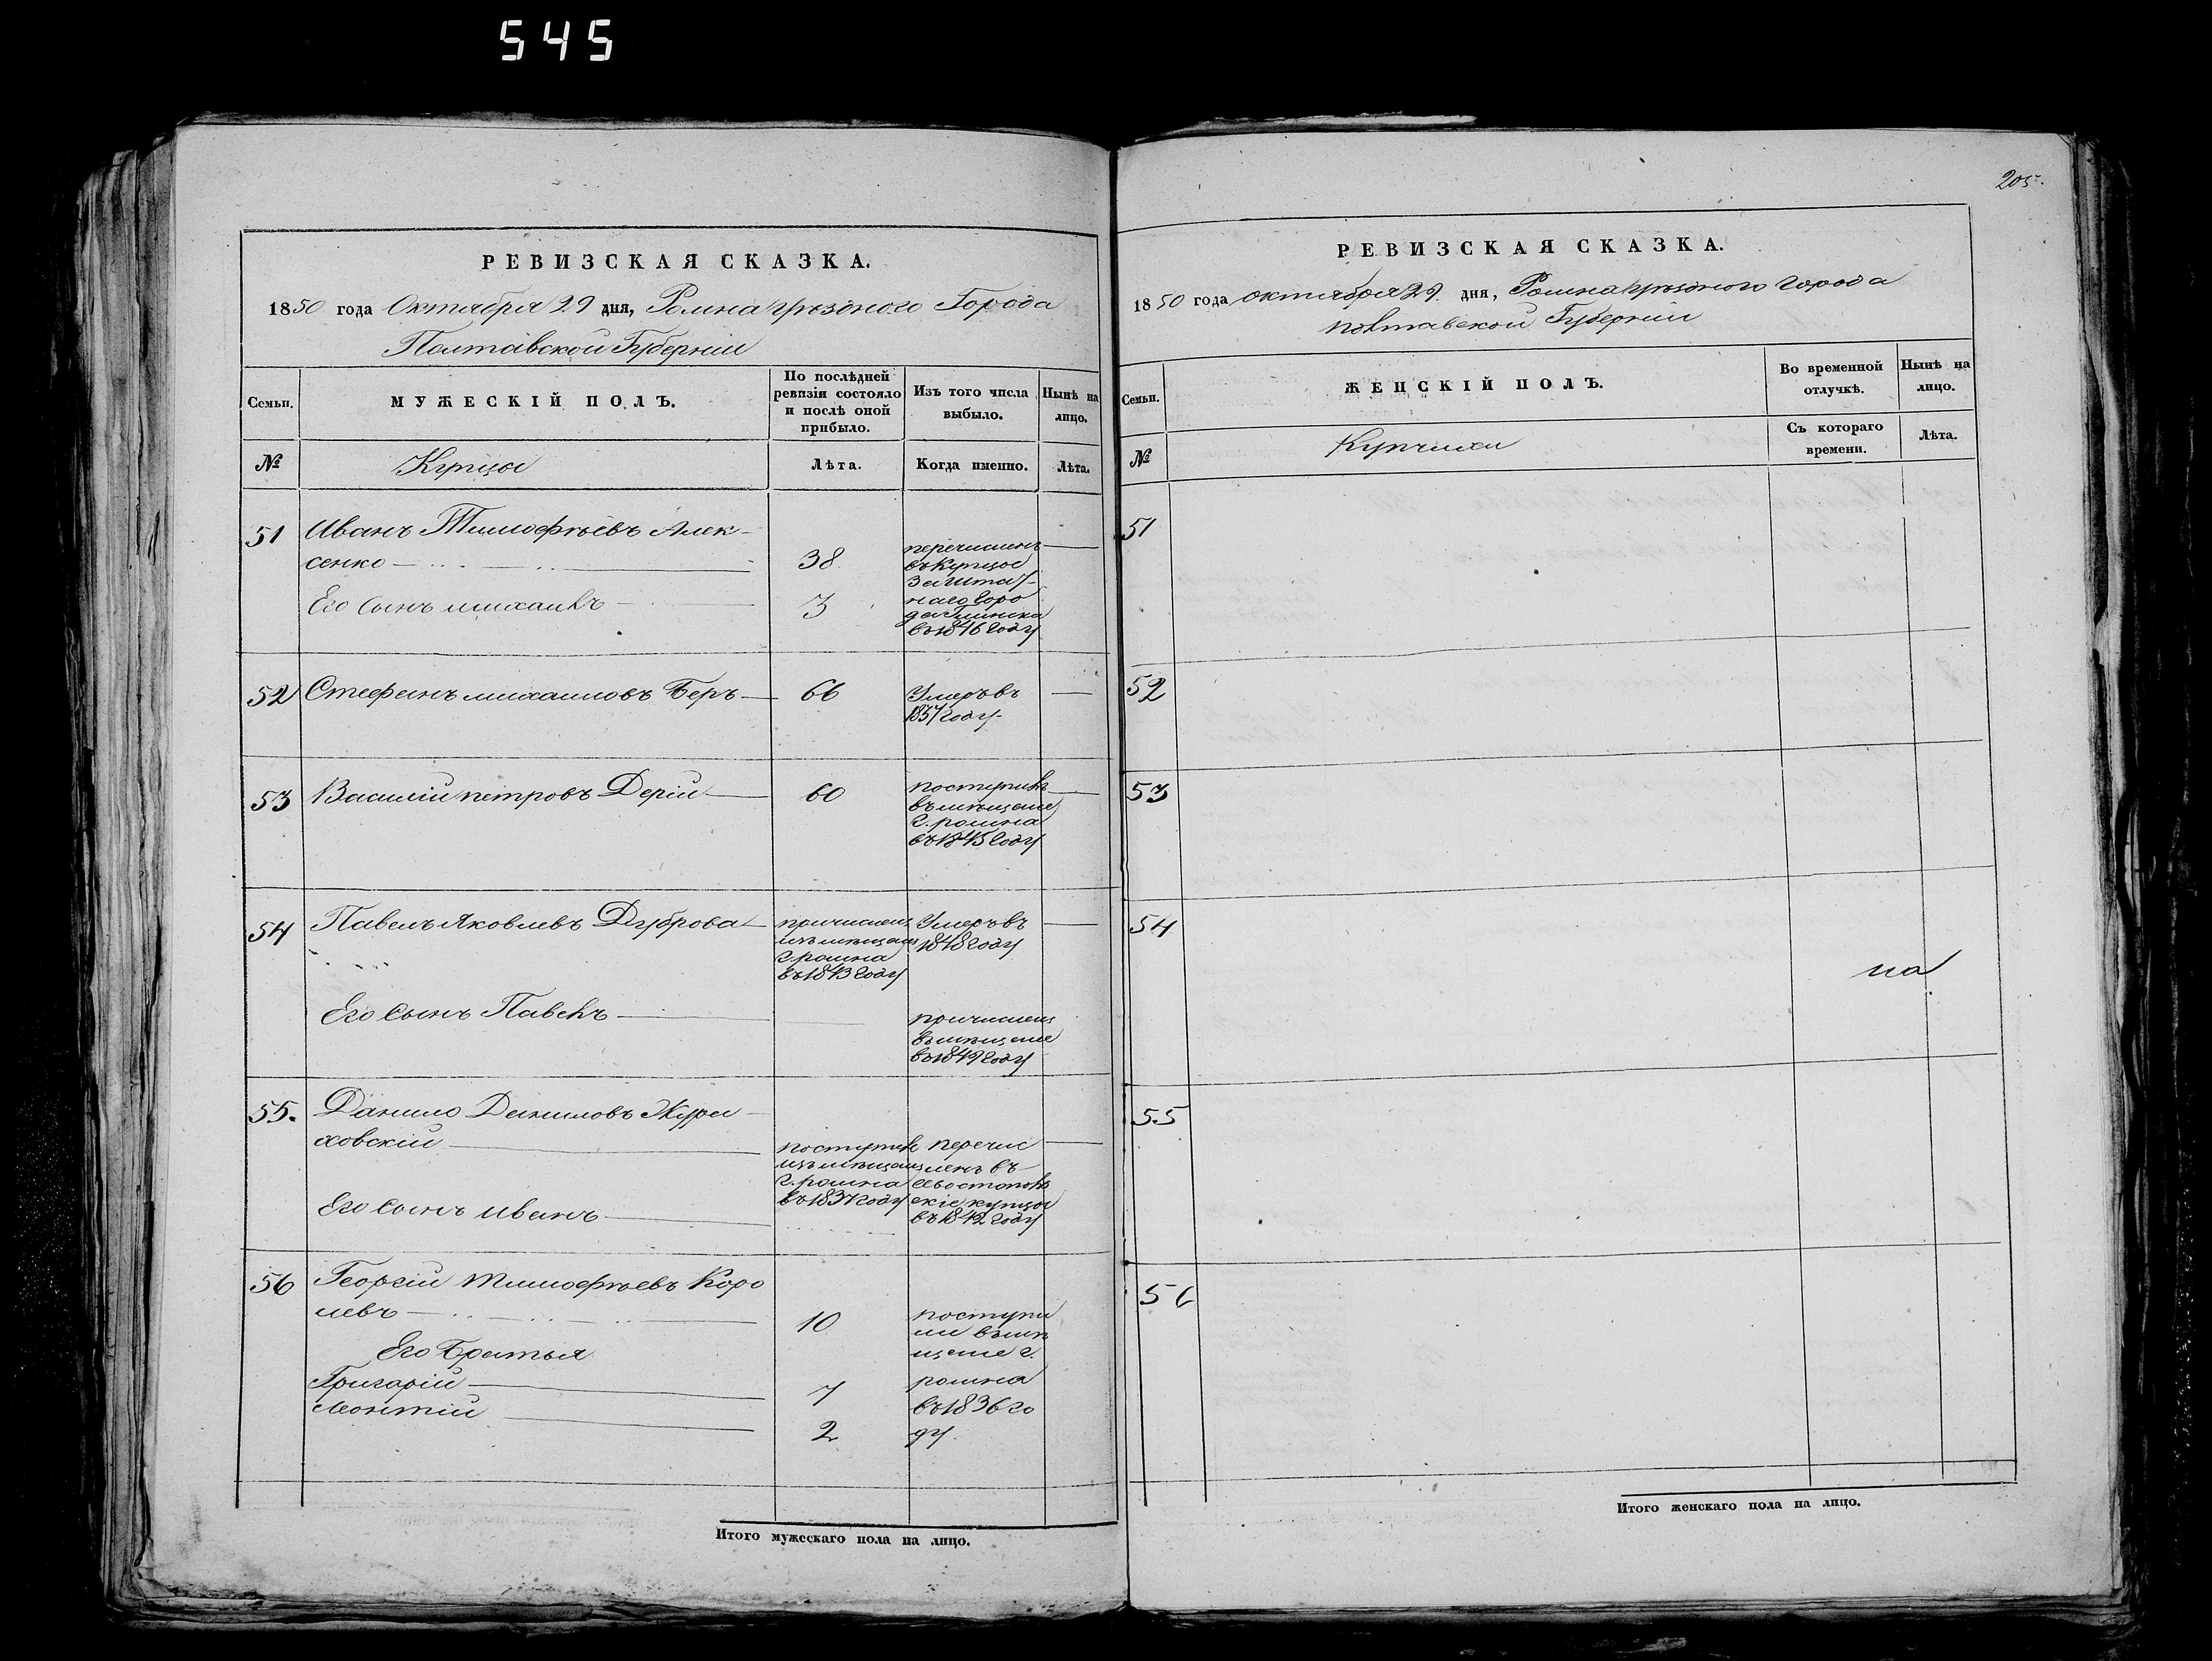 545
205.
РЕВИЗСКАЯ СКАЗКА.
1850 года Октября 29 дня, Ромна уѣзднаго Города
Полтавской Губерніи
Семьи.
МУЖЕСКІЙ ПОЛЪ.
По послѣдней ревизіи состояло и послѣ оной прибыло.
Изъ того числа выбыло.
Нынѣ на лицо.
№
Купцы
Лѣта.
Когда именно.
Лѣта.
51
Иванъ Тимофѣевъ Алек-
сенко
38
Его Сынъ михаилъ
3
перечисленъ
въ Купцы
Заштат-
наго Горо
да Глинска
въ 1846 Году
52
Стефанъ михаиловъ Беръ
66
Умеръ въ
1837 Году
53
Василій петровъ Дерій
60
поступилъ
въ мѣщане
г. ромна
въ 1845 Году
54
Павелъ Яковлевъ Дуброва
причислен
изъ мѣщанъ
г. ромна
въ 1843 Году
Умеръ въ
1848 Году
Его Сынъ Павелъ
причислен
въ мѣщане
въ 1849 Году
55.
Данило Даниловъ Жура
ховскій
поступилъ
изъ мѣщан
г. ромна
въ 1837 году
перечис
ленъ въ
севостополь
скіе купцы
въ 1842 Году
Его Сынъ Иванъ
56
Георгій тимофѣевъ Коро
левъ
10
Его Братья
Григорій
7
Леонтій
2
поступи
ли въ мѣ
щане г.
ромна
въ 1836 го
ду.
Итого мужескаго пола на лицо.
РЕВИЗСКАЯ СКАЗКА.
1850 года октября 29 дня, Ромна уѣзднаго города
полтавской Губерніи
Семьи.
ЖЕНСКІЙ ПОЛЪ.
Во временной отлучкѣ.
Нынѣ на лицо.
№
Купчихи
Съ котораго времени.
Лѣта.
51
52
53
54
на
55
56
Итого женскаго пола на лицо.